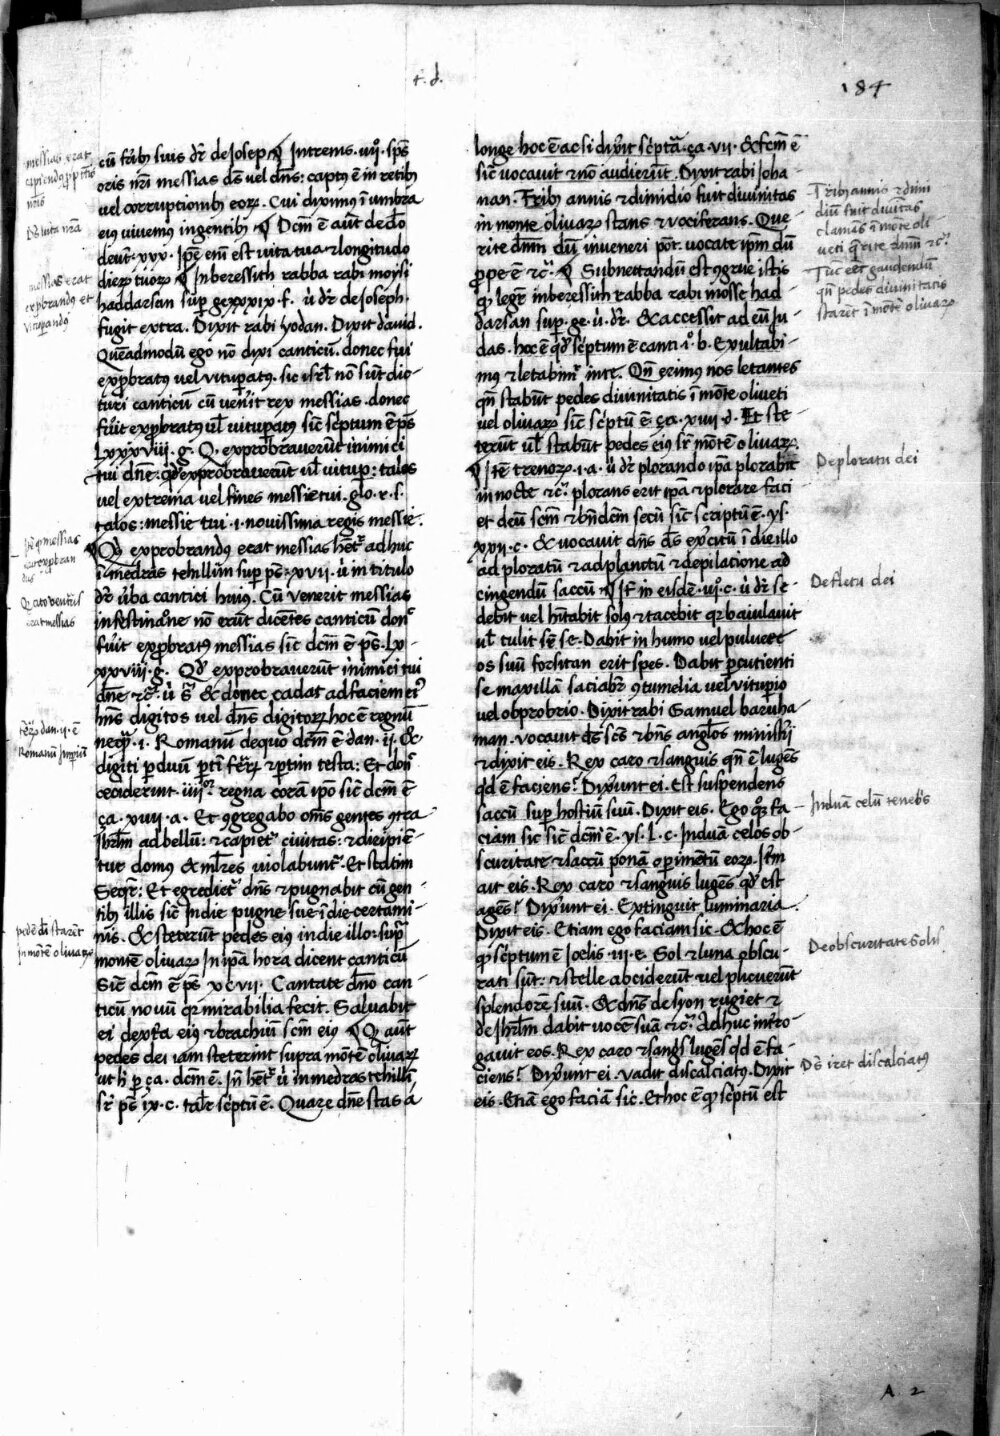 t. d.
184
messias erat
nr̄is
Ds̄ uita nr̄a
messias erat
exprobrandꝰ et
uituꝑandꝰ
cū fr̄ibꝫ suis dr̄ de Josep ¶ Jn trenis. iiijº. sps̄
oris nr̄i messias ds̄ vel dn̄s: captꝰ ē in retibꝫ
vel corruptionibꝫ eoꝝ. Cui diximꝰ ī umbra
eiꝰ viuemꝰ in gentibꝫ ¶ Dcm̄ ē aūt de deo
deut̄. xxx. Ip̄e em̄ est uita tua ⁊ longitudo
dieꝝ tuoꝝ ¶ Jn beressith rabba rabi moysi
haddarsan sup̱ ge xxxix. f. ù dr̄ de Joseph.
fugit extra. Dixit rabi yodan. Dixit dauid.
Quēadmodū ego nō dixi canticū. donec fui
exp̱bratꝰ vel vituꝑatꝰ. sic isrl̄ nō sūt dic-
turi canticū cū ven̄it rex messias. donec
fūit exprobratꝰ vl̄ vituꝑatꝰ sic̄ sc̄ptum ē ps̄
Lxxxviii. g. Q. exprobrauerūt inimici
tui dn̄e: qd̄ exprobrauerūt vl̄ vituꝑ: talos
vel extrema vel fines messie tui. glo. r. s.
talos: messie tui .i. nouissima regis messie.
¶ Qd̄ exprobrandꝰ erat messias hēt̄ adhuc
ī medras tehillim sup̱ ps̄. xvii. ù in titulo
dr̄ ūba cantici huiꝰ. Cū venerit messias
in festinaōne nō erūt dicētes canticū donc̄
fūit exp̱bratꝰ messias sic̄ dcm̄ ē ps̄. Lx-
xxviii. g. Qd̄ exprobrauerūt inimici tui
dn̄e ⁊c̄. ù s̄ & donec cadat ad faciem eiꝰ
hn̄s digitos vel dn̄s digitoꝝ hoc ē regnū
neq̄ꝫ .i. Romanū de quo dcm̄ ē dan. ij. &
digiti ꝑ duū ꝑtī fēꝝ ⁊ ꝑtim testa: Et donc̄
ceciderint. iiijor. regna corā ip̄o sic̄ dcm̄ ē
ça. xiiii. a. Et ꝯgregabo om̄s gentes ꝯtra
Jhrlm̄ ad bellū: ⁊ capiet̄ ciuitas: ⁊ diripiē-
tur domꝰ & ml̄res violabunt̄. Et statim
Seqr̄: Et egrediet̄ dn̄s ⁊ pugnabit cū gen-
tibꝫ illis sic̄ in die pugne sue ī die certami-
nis. & steterūt pedes eiꝰ in die illo: supra
montē oliuaꝝ Jn ip̄a hora dicent canticū
Sic̄ dcm̄ ē ps̄ xcvii. Cantate dn̄o can
ticū nouū qꝛ mirabilia fecit. Saluabit
ei dextra eiꝰ ⁊ brachiū scm̄ eiꝰ ¶ Q̄ aūt
pedes dei iam steterint supra mōtē oliuaꝝ
ut h̄ ꝑ ça. dcm̄ ē. Jn̄ hēt̄ ù in medras tehilli
sr̄ ps̄ ix. c. talr̄ sc̄ptū ē. Quare dn̄e stas a
Q̄ cito ventur̄
erat messias
dan. ij. ē
Romanū Jmperiū
pedes dei starēt
in mōte oliuaꝝ
longe hoc ē ac si dixit sc̄ptā. ça. vii. & fcm̄ ē
sic̄ vocauit ⁊ nō audierūt. Dixit rabi Joha-
nan. Tribꝫ annis ⁊ dimidio fuit diuinitas
in monte oliuaꝝ stans ⁊ vociferans. Que
rite dn̄m dū inueneri pōt. vocate ip̄m dū
prope ē ⁊c̄. ¶ Subnectandū est ꝯgrue istis
qd̄ legr̄ in beressith rabba rabi mosse had
darsan sup. ge. ù. dr̄. & accessit ad eū Ju
das. hoc ē qd̄ sc̄ptum ē canti .iº. b. Exultabi-
mꝰ ⁊ letabimr̄ in te. Qn̄ erimꝰ nos letantes
qn̄ stabūt pedes diuinitatis ī mōte oliueti
vel oliuaꝝ sic̄ sc̄ptū ē ça. xiiii. d. Et ste
terūt vl̄ stabūt pedes eiꝰ sr̄ mōtē oliuaꝝ.
¶ Jtē trenoꝝ .i. a. ù dr̄ plorando ip̄a plorabit
in nocte ⁊c̄. plorans erit ip̄a ⁊ plorare faci
et deū scm̄ ⁊ bn̄dcm̄ secū sic̄ scriptū ē. ys.
xxii. c. & vocauit dn̄s ds̄ ex̄cituū ī die illo
ad ploratū ⁊ ad planctū ⁊ depilatione ad
cingendū saccū ¶ Jt̄ in eisdē. iijº. c. ù dr̄ se
debit vel hīt̄abit solꝰ ⁊ tacebit qꝛ baiulauit
vl̄ tulit sr̄ se. Dabit in humo vel puluere
os suū forsitan erit spes. Dabit ꝑcutienti
se maxillā saciabr̄ ꝯtumelia vel vituꝑio
vel obprobrio. Dixit rabi Samuel bar nha-
man. vocauit ds̄ scs̄ ⁊ bn̄s angl̄os ministr̄i
⁊ dixit eis. Rex caro ⁊ sanguis qn̄ ē lugēs
qd̄ ē faciens? Dixūnt ei. Est suspendens
saccū sup̱ hostiū suū. Dixit eis. Ego qꝫ fa-
ciam sic sic̄ dcm̄ ē. ys. L. c. Induā celos ob-
scuritate ⁊ saccū ponā oꝑimētū eoꝝ. Jt̄m
ait eis. Rex caro ⁊ sanguis lugēs qd̄ est
agēs? Dixūnt ei. Extinguit luminaria.
Dixit eis. Etiam ego faciam sic. & hoc ē
qd̄ sc̄ptum ē Joelis. iij. e. Sol ⁊ luna obscu-
rati sūt: ⁊ stelle absciderūt vel plicuerūt
splendorē suū. & dn̄s de syon rugiet ⁊
de Jhrlm̄ dabit vocē suā ⁊c̄. Adhuc intr̄o-
gauit eos. Rex caro ⁊ sangs̄ lugēs qd̄ ē fa-
ciens? Dixūnt ei. Vadit discalciatꝰ. Dixit
eis. Etiā ego faciā sic. Et hoc ē qd̄ sc̄ptū est
Tribꝫ annis ⁊ dimi
diū fuit diuinitas
clamās ī mōte oli
ueti q̄rite dn̄m ⁊c̄.
Tūc eēt gaudendū
qn̄ pedes diuinitatis
starēt ī mōte oliuaꝝ
De ploratu dei
De fletu dei
Jnduā celū tenebs̄
De obscuritate Solis
Ds̄ iret discalciatꝰ
A. 2